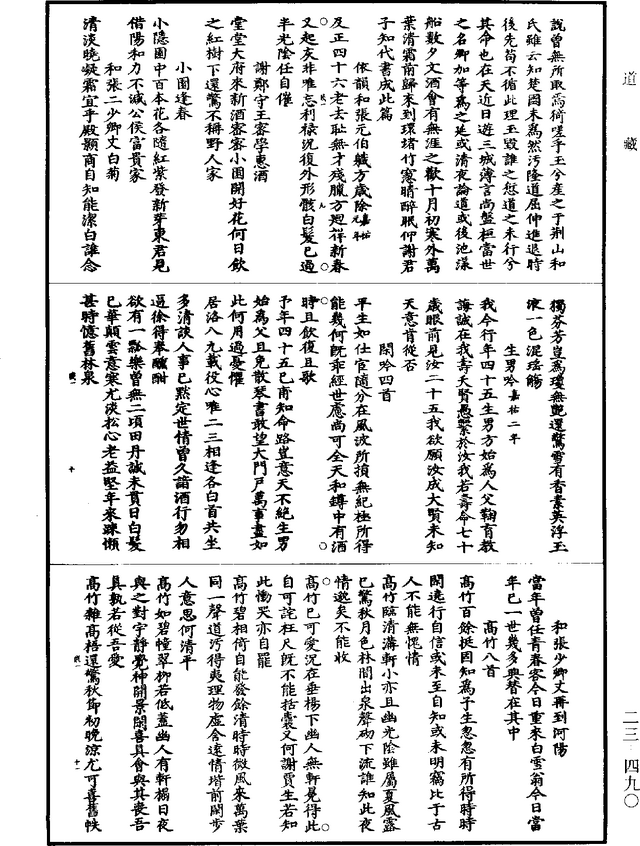 道藏
二三 四九〇
說曾無所取焉徜嗟乎玉兮產之于荆山和
氏雖云知楚國未爲然汚隆道屈伸進退時
後先苟不循此理玉毀誰之愆道之未行兮
其命也在天近日遊三城薄言尚盤桓當世
之名卿加等爲之延或清夜論道或後池漾
船數夕文酒會有無涯之歡十月初寒外萬
葉清霜前歸來到環堵竹窻晴醉眠仰謝君
子知代書成此篇
依韻和張元伯職方歲除嘉祐元年
及正四十六老去耻無才殘臘方廻律新春
又起灰非唯忘利祿况復外形骸白髮已過
半光陰任自催
謝鄭守王密學惠酒
堂堂大府來新酒密密小園開好花何日飲
之紅樹下還驚不稱野人家
小園逢春
小隱園中百本花各隨紅紫發新芽東君見
借陽和力不減公侯富貴家
和張二少卿丈白菊
清淡曉凝霜宜乎殿顥商自知能潔白誰念
獨芬芳豈爲瓊無艷還驚雪有香素英浮玉
液一色混瑤觴
生男吟嘉祐二年
我今行年四十五生男方始爲人父鞠育教
誨誠在我壽夭賢愚繫於汝我若壽命七十
歲眼前見汝二十五我欲願汝成大賢未知
天意肯從否
閑吟四首
平生如仕宦隨分在風波所損無紀極所得
能幾何既乖經世慮尚可全天和罇中有酒
時且飲復且歌
予年四十五已甫知命路豈意天不絕生男
始爲父且免散琴書敢望大門戶萬事盡如
此何用過憂懼
居洛八九載役心唯二三相逢各白首共坐
多清談人事已黙定世情曾久諳酒行勿相
逼徐得奉醺酣
欲有一瓢樂曾無二頃田丹誠未貫日白髮
已華顛雲意寒尤淡松心老益堅年來踈懶
甚時憶舊林泉
和張少卿丈再到河陽
當年曾任青春客今日重來白雪翁今日當
年已一世幾多興替在其中
高竹八首
高竹百餘挺固知爲予生忽忽有所得時時
閑遶行自信或未至自知或未明竊比于古
人不能無愧情
高竹臨清溝軒小亦且幽光陰雖屬夏風露
已驚秋月色林間出泉聲砌下流誰知此夜
情邈矣不能收
高竹已可愛况在垂楊下幽人無軒冕得此
自可詫枉尺既不能括囊又何謝賈生若知
此慟哭亦自罷
高竹碧相倚自能發餘清時時微風來萬葉
同一聲道汚得夷理物虛含遠情堦前閑步
人意思何清平
高竹如碧幢翠柳若低蓋幽人有軒榻日夜
與之對宇靜覺神開景閑喜真會與其喪吾
真孰若從吾愛
高竹雜高梧還驚秋節初晚涼尤可喜舊帙